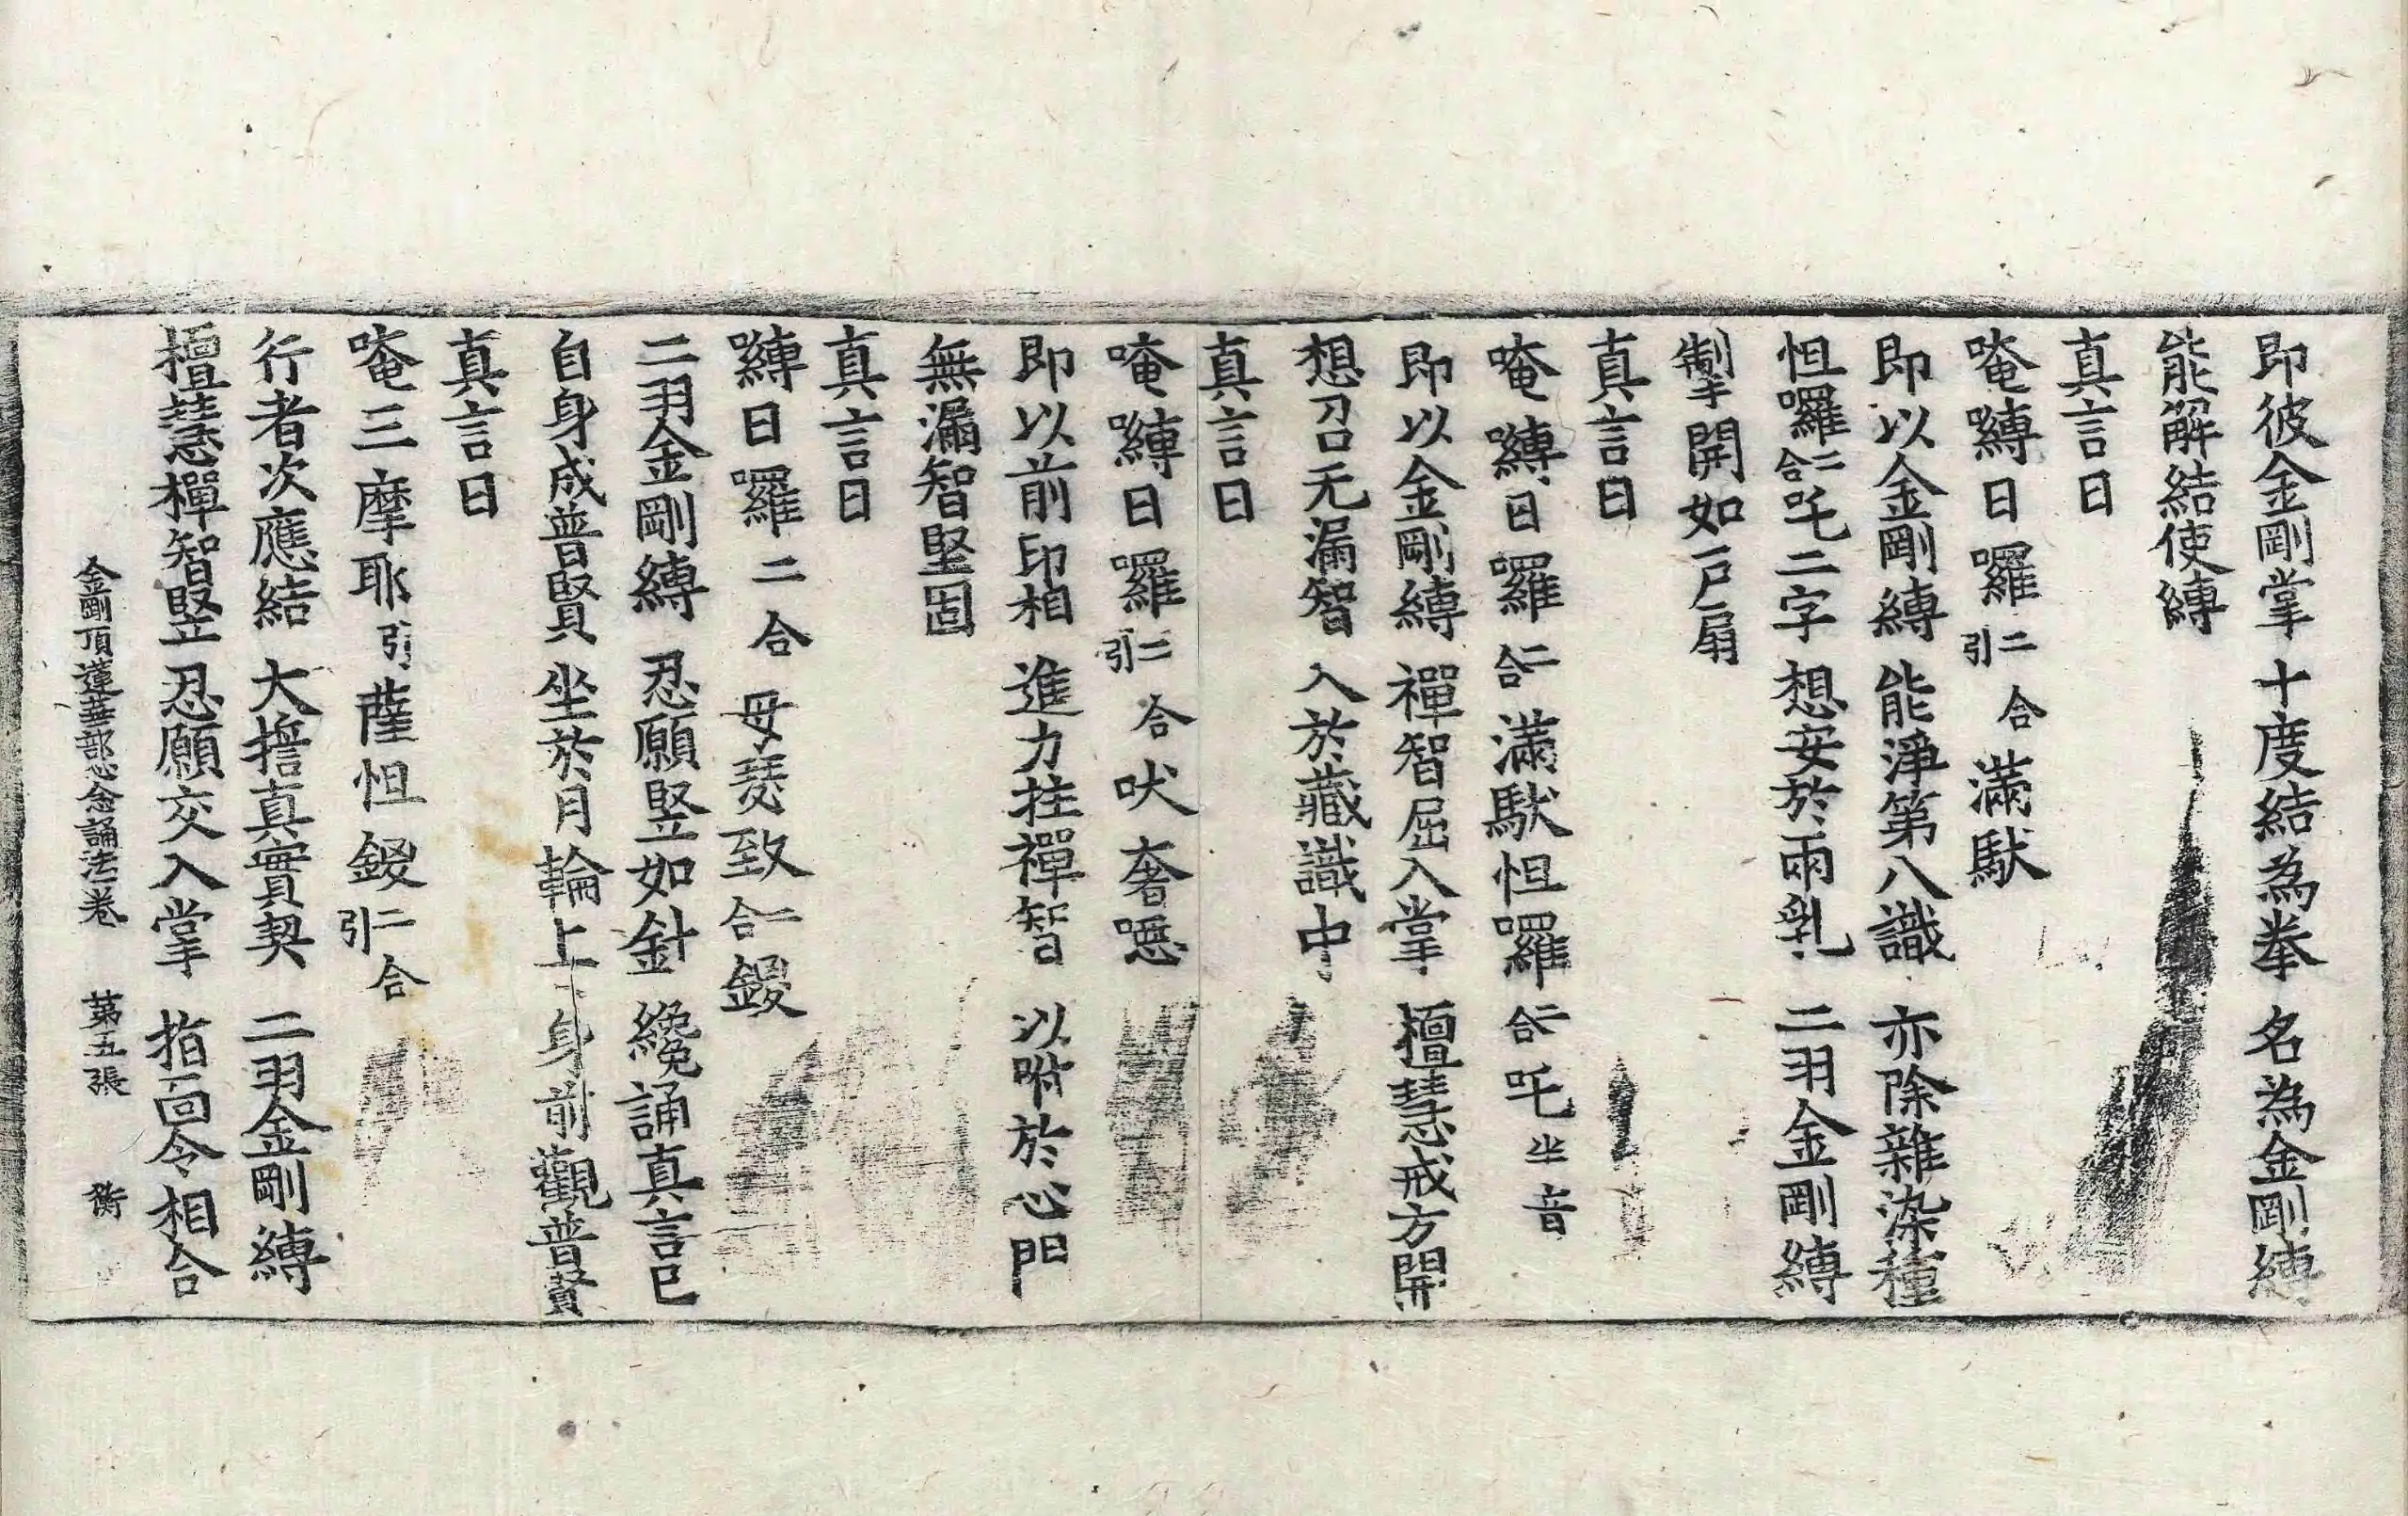 即彼金剛掌 十度結為拳 名為金剛縛
能解結使縛
真言曰
唵嚩日囉二合引滿馱
即以金剛縛 能淨第八識 亦除雜染種
怛囉二合吒二字 想安於兩乳 二羽金剛縛
掣開如戶扇
真言曰
唵嚩日囉二合滿馱怛囉二合吒半音
即以金剛縛 禪智屈入掌 檀慧戒方開
想召无漏智 入於藏識中
真言曰
唵嚩日囉二合引吠奢噁
即以前印相 進力拄禪智 以附於心門
無漏智堅固
真言曰
嚩日囉二合母瑟致二合鋄
二羽金剛縛 忍願竪如針 纔誦真言已
自身成普賢 坐於月輪上 身前觀普賢
真言曰
唵三摩耶引薩怛鋄二合引
行者次應結 大誓真實契 二羽金剛縛
檀慧禪智竪 忍願交入掌 指面令相合
金剛頂蓮華部心念誦法卷 第五張 衡